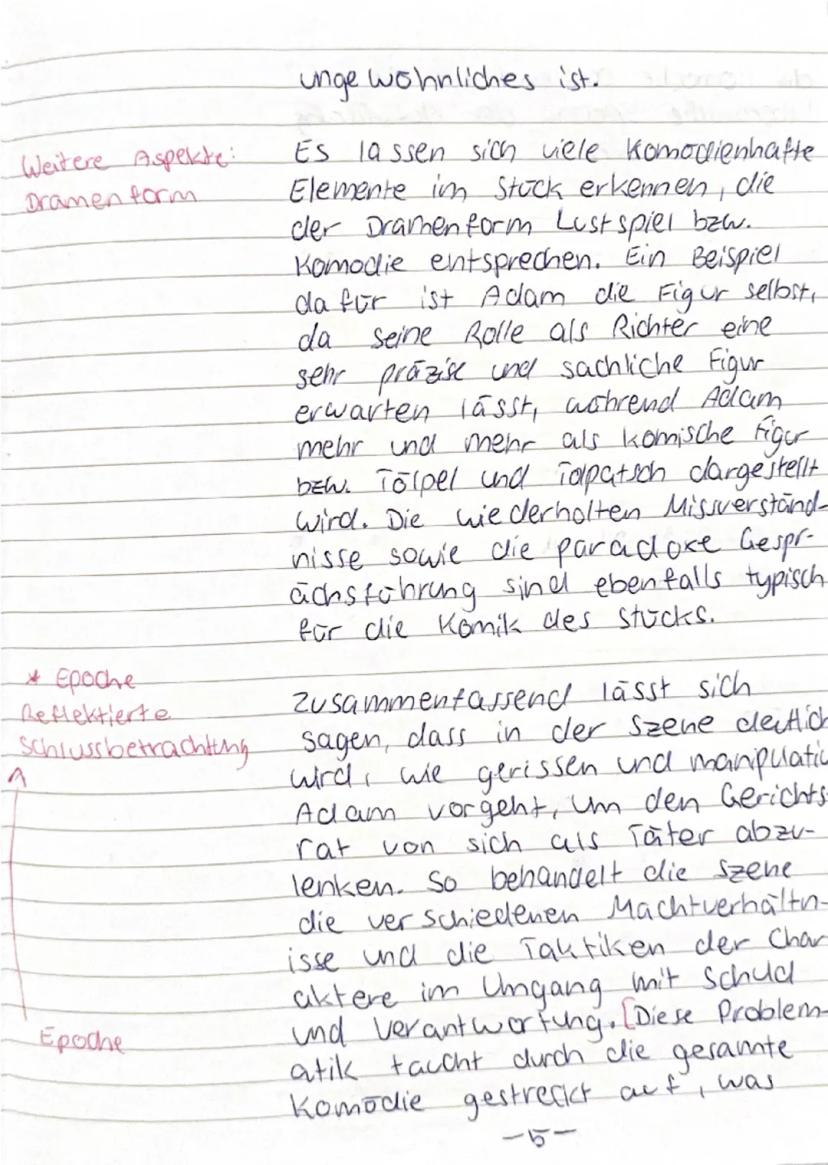 ungewöhnliches ist.
Weitere Aspekte:
Dramenform
Es lassen sich viele Komödienhafte
Elemente im Stück erkennen, die
der Dramenform Lustspiel bzw.
Komödie entsprechen. Ein Beispiel
dafür ist Adam die Figur selbst,
da seine Rolle als Richter eine
sehr präzise und sachliche Figur
erwarten lässt, während Adam
mehr und mehr als komische Figur
bzw. Tölpel und Tolpatsch dargestellt
wird. Die wiederholten Missverständ-
nisse sowie die paradoxe Gespr-
ächsführung sind ebenfalls typisch
für die Komik des Stücks.
* Epoche
Reflektierte
Schlussbetrachtung
Zusammenfassend lässt sich
sagen, dass in der Szene deutlich
wird, wie gerissen und manipulativ
Adam vorgeht, um den Gerichts-
rat von sich als Täter abzu-
lenken. So behandelt die Szene
die verschiedenen Machtverhältn-
isse und die Taktiken der Char
aktere im Umgang mit Schuld
und Verantwortung. [Diese Problem-
Epoche
atik taucht durch die gesamte
Komödie gestreckt auf, was
-5-